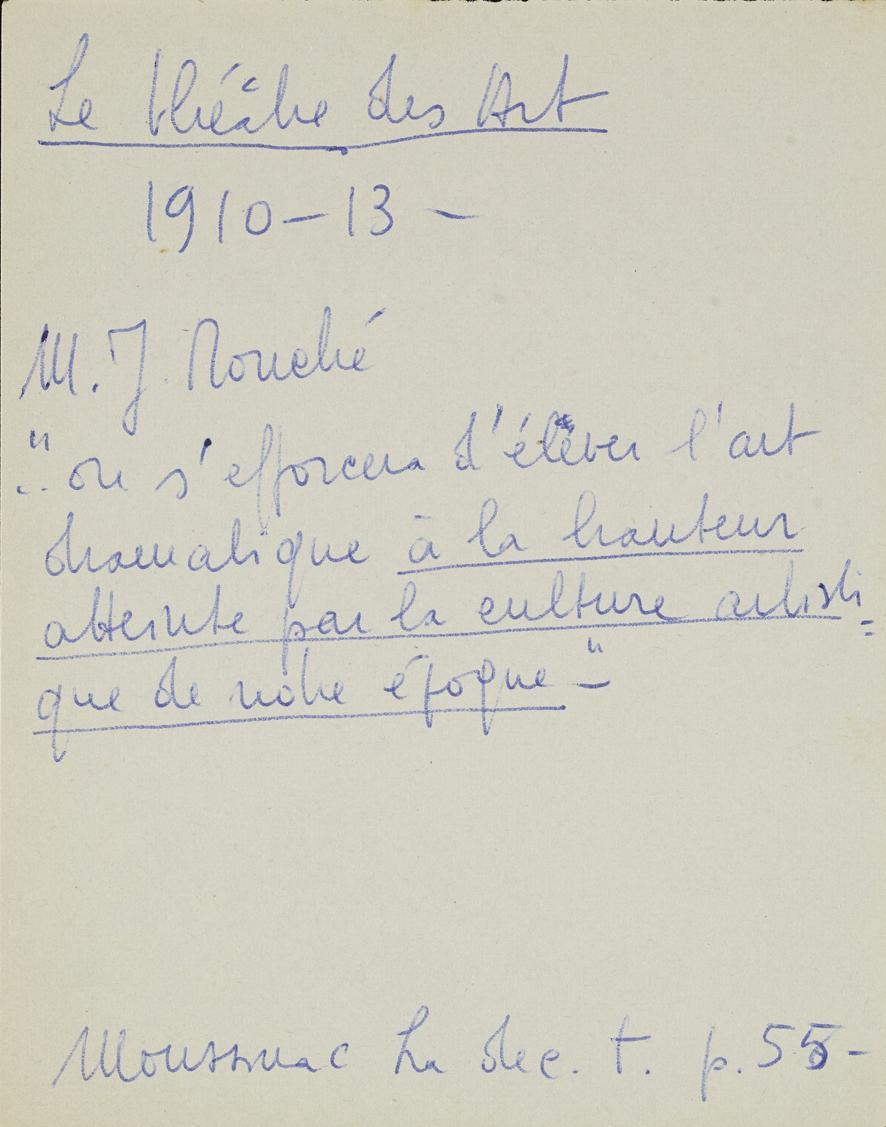 Le théâtre des Art
1910-13 -
M. J. Rouché
"... on s'efforcera d'élever l'art
dramatique à la hauteur
atteinte par la culture artisti-
que de notre époque-"
Moussinac La dec. t. p. 55-